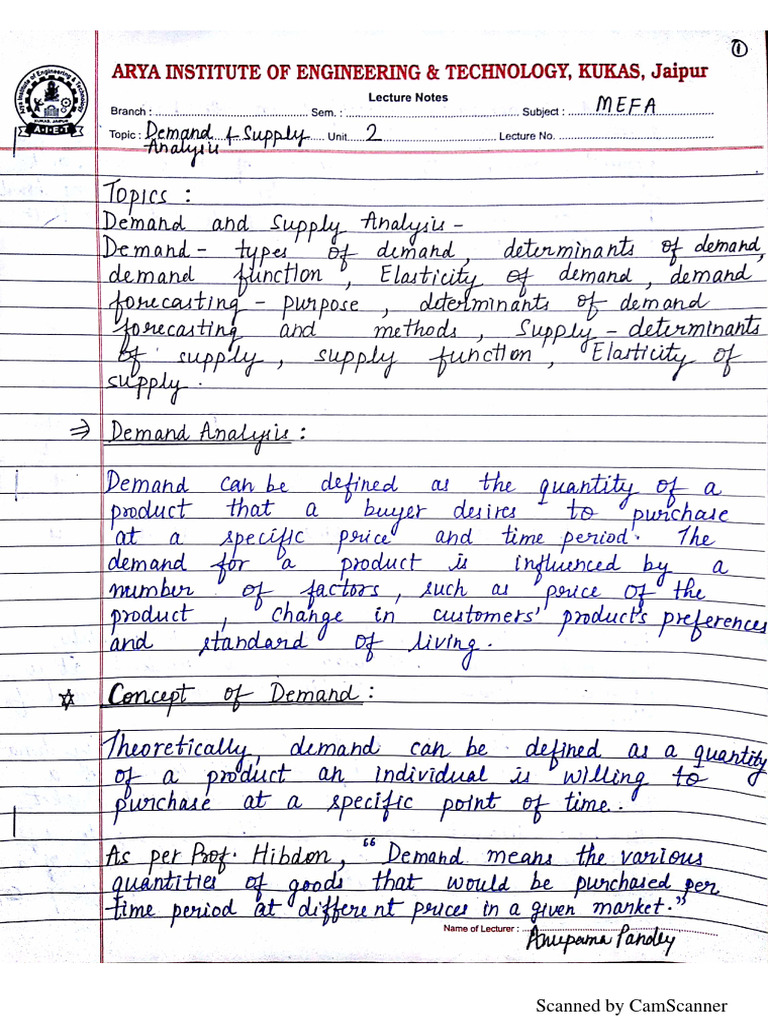 ①
ARYA INSTITUTE OF ENGINEERING & TECHNOLOGY, KUKAS, Jaipur
Lecture Notes
Branch : Sem. : Subject : MEFA
Topic : Demand & Supply Unit 2 Lecture No.
Analysis
Arya Institute of Engineering & Technology
KUKAS, JAIPUR
A-I-E-T
Topics :
Demand and Supply Analysis -
Demand - types of demand, determinants of demand,
demand function, Elasticity of demand, demand
forecasting - purpose, determinants of demand
forecasting and methods, Supply - determinants
of supply, supply function, Elasticity of
supply.
⇒ Demand Analysis :
Demand can be defined as the quantity of a
product that a buyer desires to purchase
at a specific price and time period. The
demand for a product is influenced by a
number of factors, such as price of the
product, change in customers' product's preferences
and standard of living.
☆ Concept of Demand :
Theoretically, demand can be defined as a quantity
of a product an individual is willing to
purchase at a specific point of time.
As per Prof. Hibdon, "Demand means the various
quantities of goods that would be purchased per
time period at different prices in a given market."
Name of Lecturer : Anupama Pandey
Scanned by CamScanner